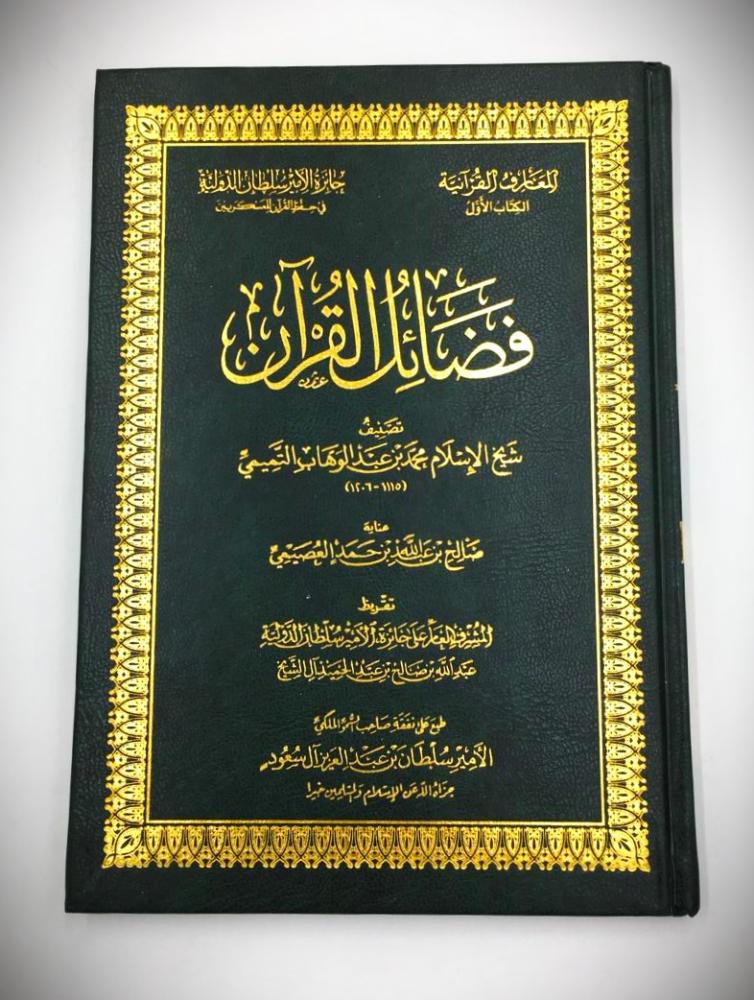 المعارف القرآنية
الكتاب الأول
جائزة الأمير سلطان الدولية
في حفظ القرآن للعسكريين
فَضَائِلُ القُرْآنِ
تصنيف
شيخ الإسلام محمد بن عبد الوهاب التميمي
(١١١٥-١٢٠٦)
عناية
صالح بن عبد الله بن حمد العصيمي
تقريظ
المشرف العام على جائزة الأمير سلطان الدولية
عبد الله بن صالح بن عبد الحميد آل الشيخ
طبع على نفقة صاحب السمو الملكي
الأمير سلطان بن عبد العزيز آل سعود
جزاه الله عن الإسلام والمسلمين خيرا